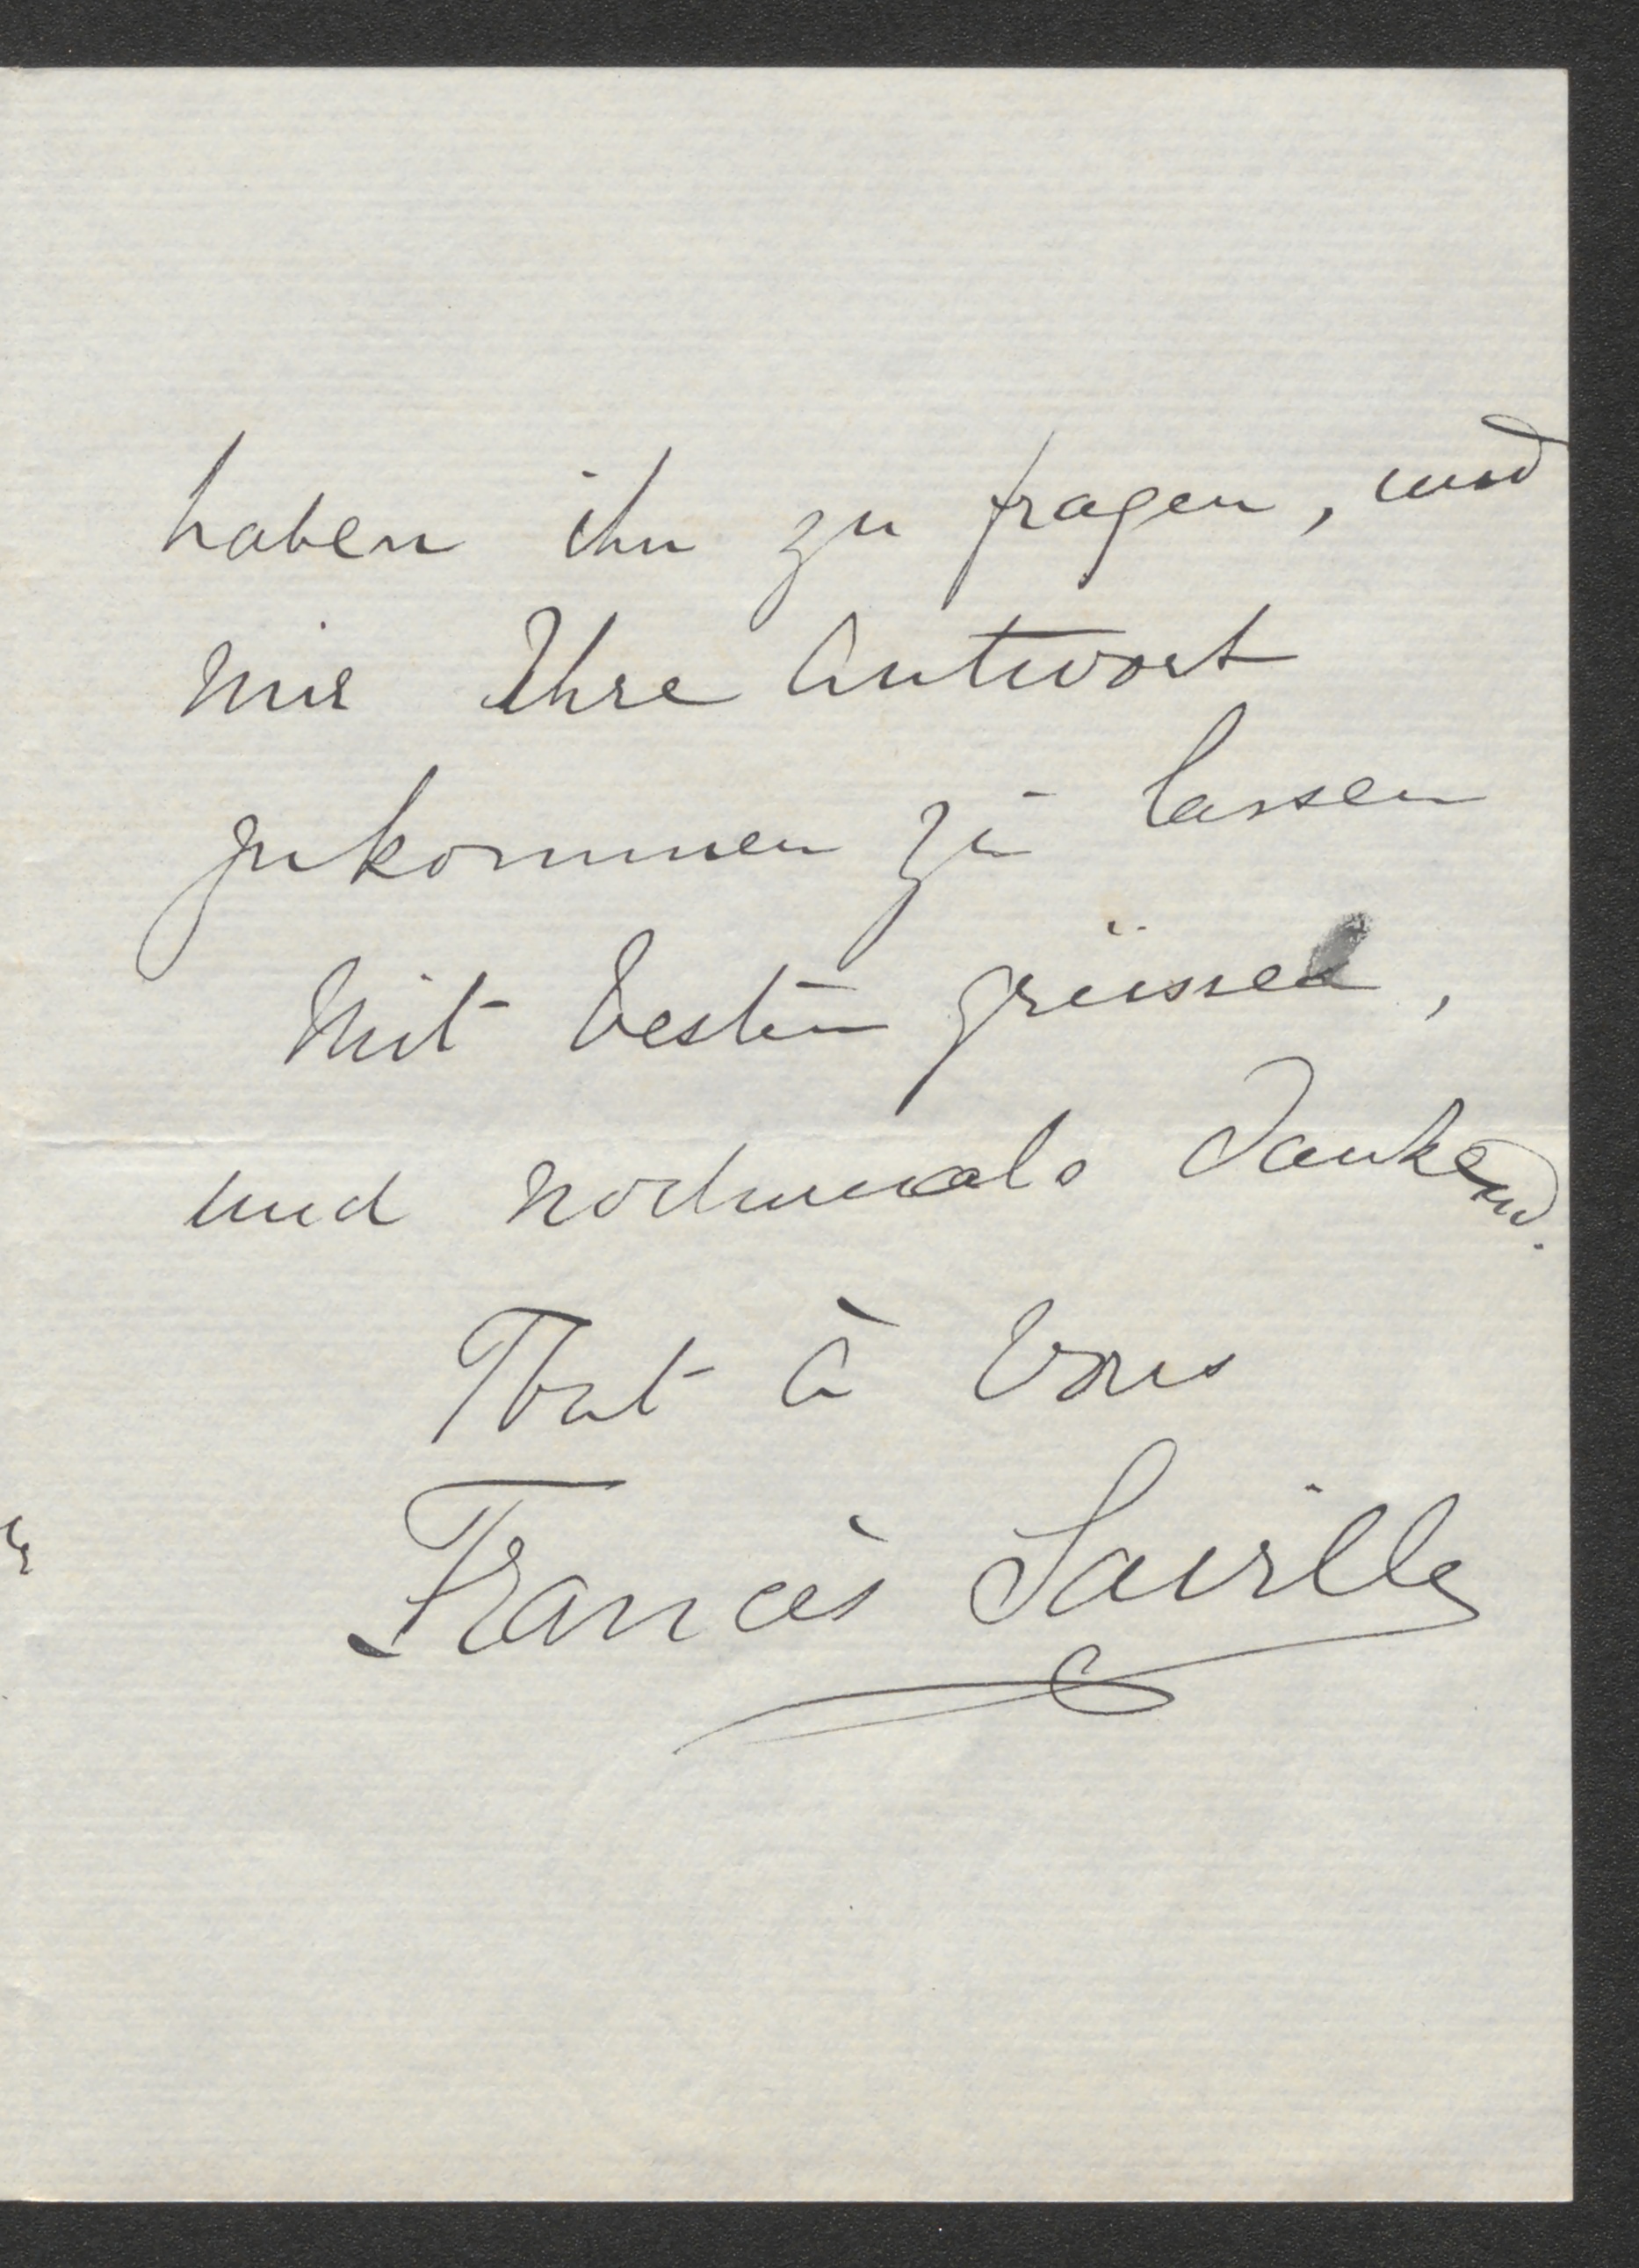 haben ihn zu fragen, und
mir Ihre Antwort
zukommen zu lassen
Mit besten grüssen,
und nochmals dankend.
Tout à Vous
Francès Saville